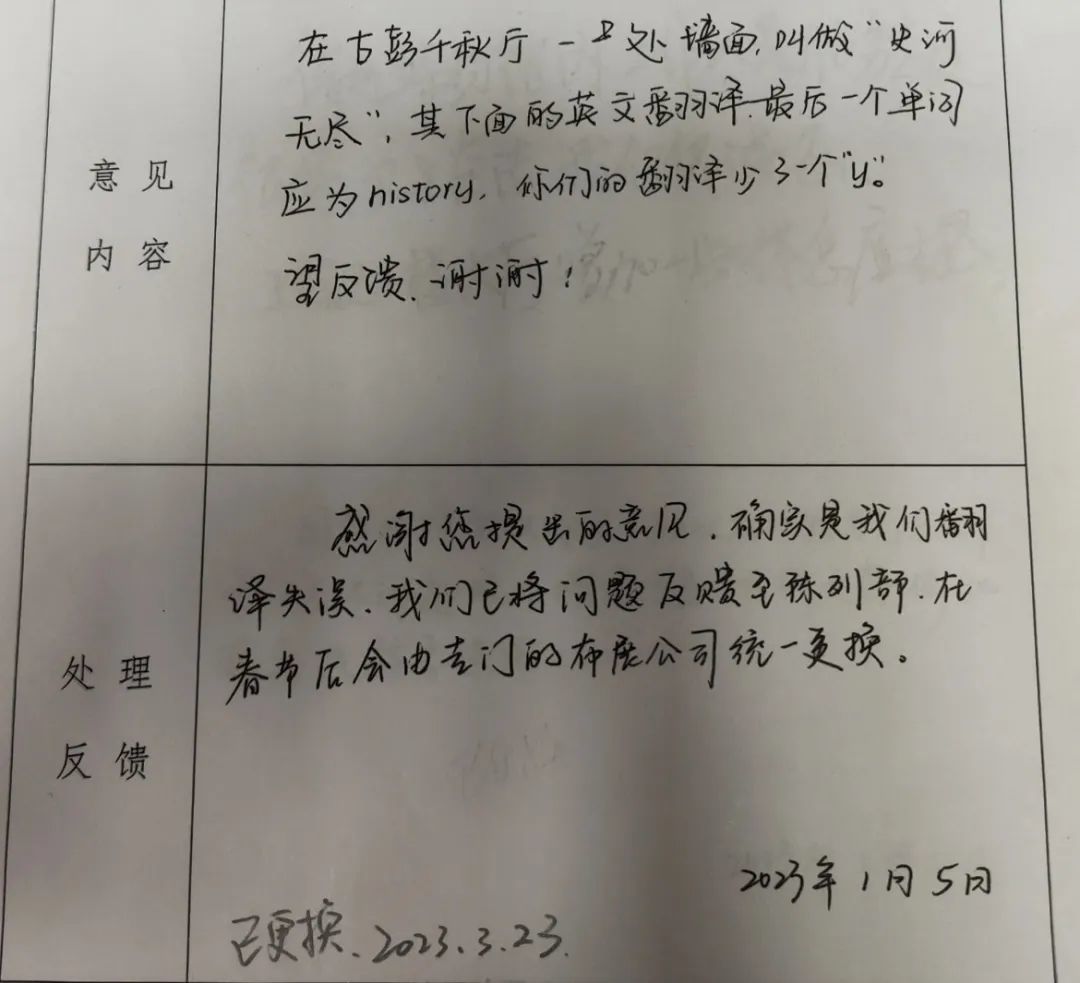 意见
内容
在古彭千秋厅一处墙面,叫做“史河
无尽”,其下面的英文翻译最后一个单词
应为history,你们的翻译少了一个“y”。
望反馈、谢谢!
处理
反馈
感谢您提出的意见,确实是我们翻
译失误、我们已将问题反馈至陈列部,在
春节后会由专门的布展公司统一更换。
2023年1月5日
已更换、2023.3.23.